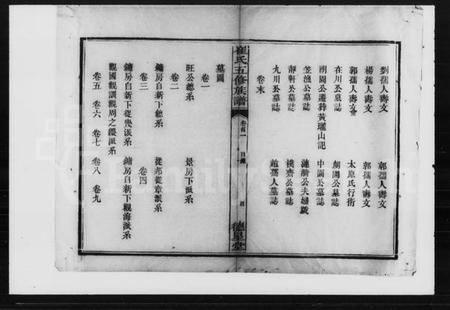 劉孺人壽文
郭孺人壽文
楊孺人壽文
郭孺人壽文
郭孺人壽文
太原氏行術
在川公墓誌
朗園公墓誌
朗園公遷葬黃瓏山記
中園公墓誌
笠漁公墓誌
漣漪公夫婦氈
靜軒公墓誌
樸齋公墓誌
九川公墓誌
趙孺人墓誌
卷末
崔氏五修族譜
卷首一
目錄
德星堂
墓圖
卷一
旺公總系
景房下派系
卷二
鏞房自新下總系
從邦從章派系
卷三
卷四
鏞房自新下從幾派系
鏞房自新下觀海派系
觀國觀訓觀周之綬派系
卷五
卷六
卷七
卷八
卷九